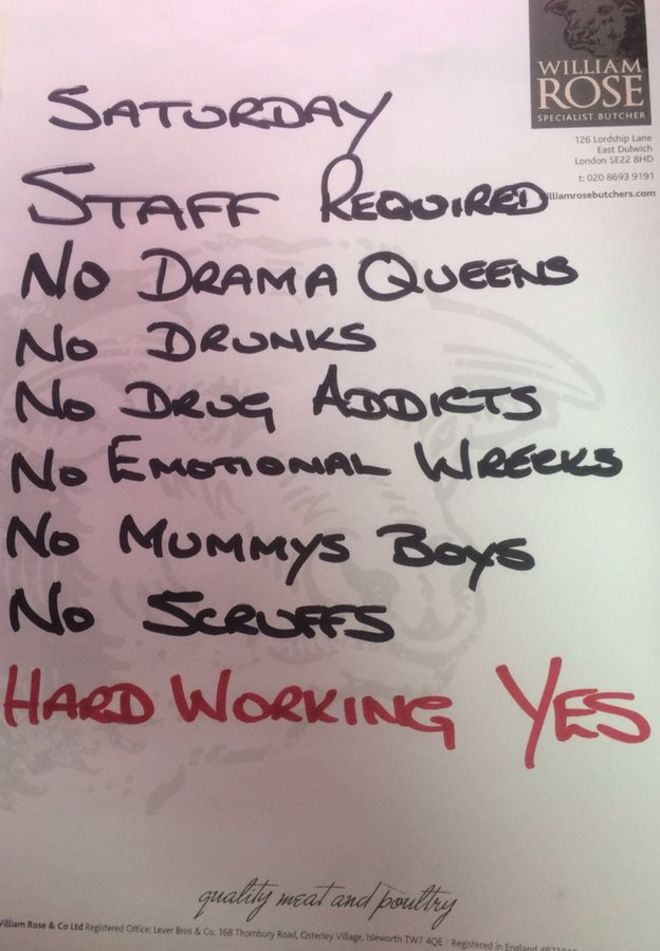 WILLIAM
ROSE
SPECIALIST BUTCHER
126 Lordship Lane
East Dulwich
London SE22 8HD
t: 020 8693 9191
illiamrosebutchers.com
SATURDAY
STAFF REQUIRED
NO DRAMA QUEENS
NO DRUNKS
NO DRUG ADDICTS
NO EMOTIONAL WRECKS
NO MUMMYS BOYS
NO SCRUFFS
HARD WORKING YES
quality meat and poultry
William Rose & Co Ltd Registered Office: Lever Bros & Co, 168 Thornbury Road, Osterley Village, Isleworth TW7 4QE / Registered in England